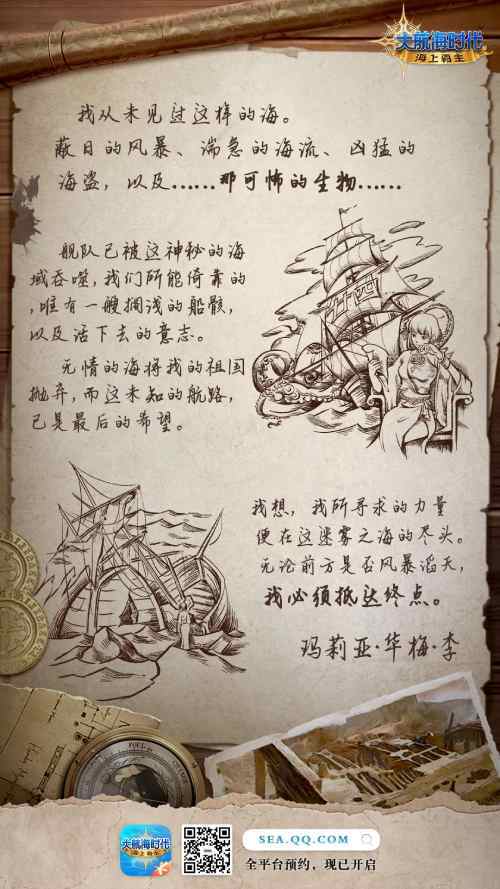 大航海时代
海上霸主
我从未见过这样的海。
蔽日的风暴、湍急的海流、凶猛的
海盗，以及……那可怖的生物……
舰队已被这神秘的海
域吞噬，我们所能倚靠的
，唯有一艘搁浅的船骸，
以及活下去的意志。
无情的海将我的祖国
抛弃，而这未知的航路，
已是最后的希望。
我想，我所寻求的力量
便在这迷雾之海的尽头。
无论前方是否风暴滔天，
我必须抵达终点。
玛莉亚·华梅·李
大航海时代
海上霸主
SEA.QQ.COM
全平台预约，现已开启